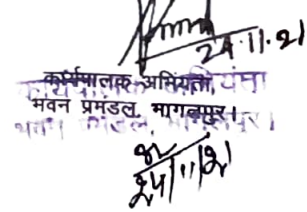 24.11.21
कार्यपालक अभियंता
भवन प्रमंडल, भागलपुर।
24/11/21